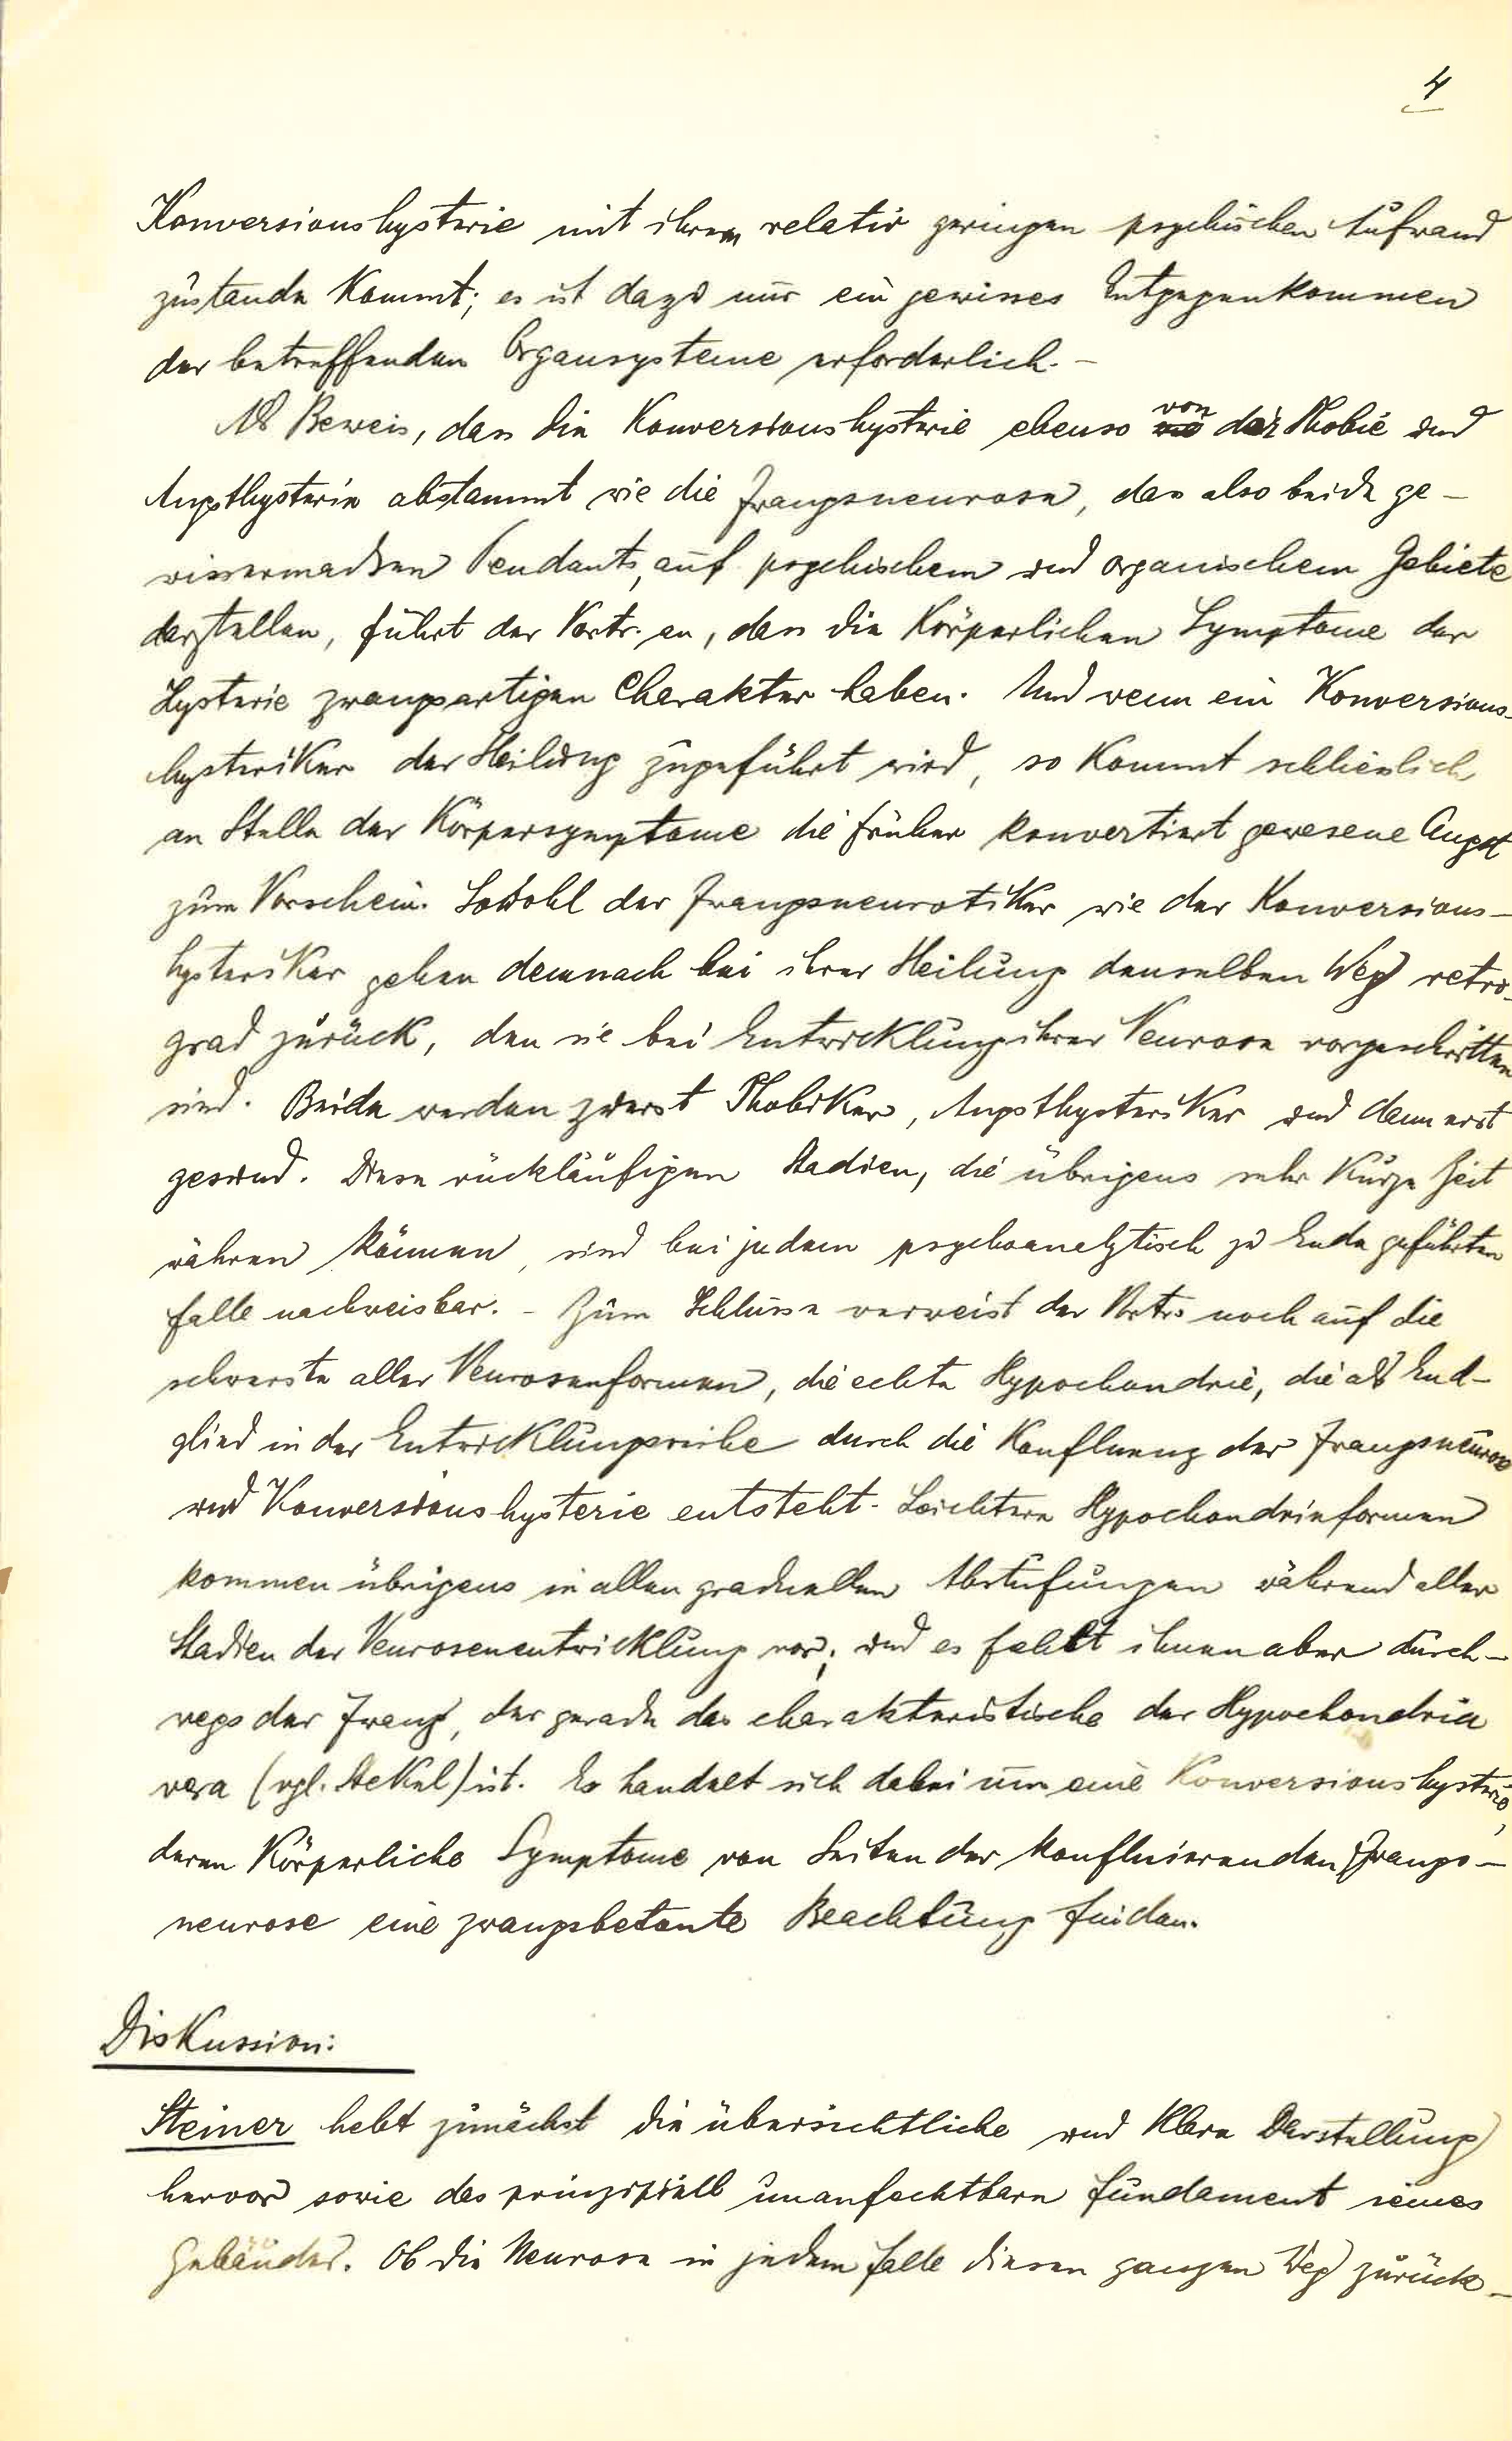 4
Konversionshysterie mit ihrem relativ geringen psychischen Aufwand
zustande kommt; es ist dazu nur ein gewisses Entgegenkommen
der betreffenden Organsysteme erforderlich. –
Als Beweis, dass die Konversionshysterie ebenso von der Phobie und
Angsthysterie abstammt wie die Zwangsneurose, dass also beide ge-
wissermassen Pendants, auf psychischem und organischem Gebiete
darstellen, führt der Vortr. an, dass die körperlichen Symptome der
Hysterie zwangsartigen Charakter haben. Und wenn ein Konversions-
hysteriker der Heilung zugeführt wird, so kommt schliesslich
an Stelle der Körpersymptome die früher konvertiert gewesene Angst
zum Vorschein. Sowohl der Zwangsneurotiker wie der Konversions-
hysteriker gehen demnach bei ihrer Heilung denselben Weg retro-
grad zurück, den sie bei Entwicklung ihrer Neurose vorgeschritten
sind. Beide werden zuerst Phobiker, Angsthysteriker und dann erst
gesund. Diese rückläufigen Stadien, die übrigens sehr kurze Zeit
währen können, sind bei jedem psychoanalytisch zu Ende geführten
Falle nachweisbar. – Zum Schlusse verweist der Vortr. noch auf die
schwerste aller Neurosenformen, die echte Hypochondrie, die als End-
glied in der Entwicklungsreihe durch die Konfluenz der Zwangsneurose
und Konversionshysterie entsteht. Leichtere Hypochondrieformen
kommen übrigens in allen graduellen Abstufungen während aller
Stadien der Neurosenentwicklung vor; und es fehlt ihnen aber durch-
wegs der Zwang, der gerade das charakteristische der Hypochondria
vera (vgl. Stekel) ist. Es handelt sich dabei um eine Konversionshysterie,
deren körperliche Symptome von Seiten der konfluierenden Zwangs-
neurose eine zwangsbetonte Beachtung finden.
Diskussion:
Steiner hebt zunächst die übersichtliche und klare Darstellung
hervor sowie das prinzipiell unanfechtbare Fundament seines
Gebäudes. Ob die Neurose in jedem Falle diesen ganzen Weg zurück-